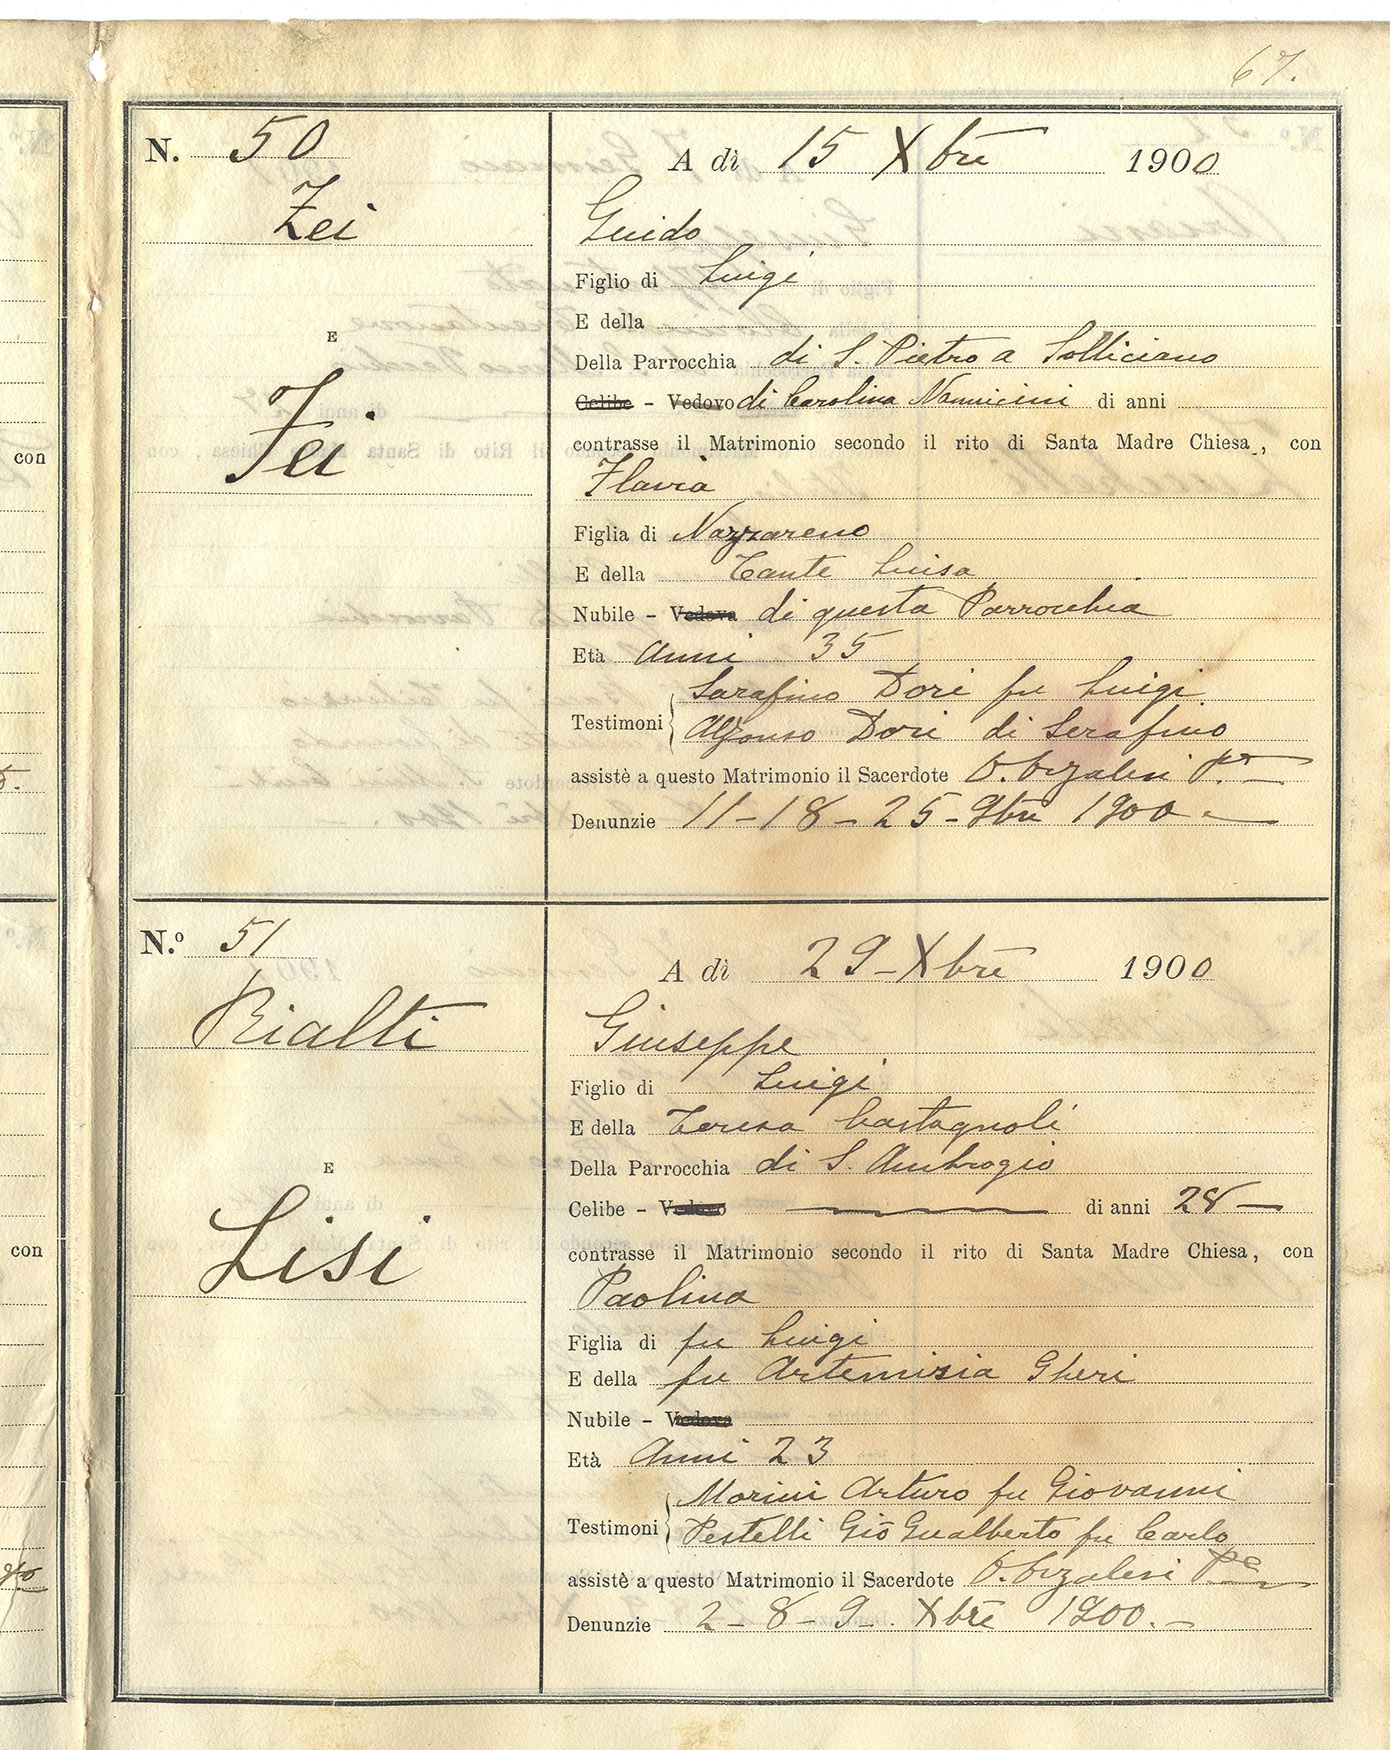 67.
N. 50
Zei
E
Fei
A dì 15 Xbre 1900
Guido
Figlio di Luigi
E della
Della Parrocchia di S. Pietro a Solliciano
Celibe - Vedovo di Carolina Nannicini di anni
contrasse il Matrimonio secondo il rito di Santa Madre Chiesa, con
Flavia
Figlia di Nazzareno
E della Tante Luisa
Nubile - Vedova di questa Parrocchia
Età Anni 35
Sarafino Dori fu Luigi
Testimoni
Alfonso Dori di Serafino
assistè a questo Matrimonio il Sacerdote O. Orzalesi
Denunzie 11-18-25-9bre 1900
N.º 51
Rialti
E
Lisi
A dì 29-Xbre 1900
Giuseppe
Figlio di Luigi
E della Teresa Castagnoli
Della Parrocchia di S. Ambrogio
Celibe - Vedovo di anni 28
contrasse il Matrimonio secondo il rito di Santa Madre Chiesa, con
Paolina
Figlia di fu Luigi
E della fu Artemisia Gheri
Nubile - Vedova
Età Anni 23
Morini Arturo fu Giovanni
Testimoni
Pestelli Gio Gualberto fu Carlo
assistè a questo Matrimonio il Sacerdote O. Orzalesi
Denunzie 2-8-9-. Xbre 1900.-
con
con